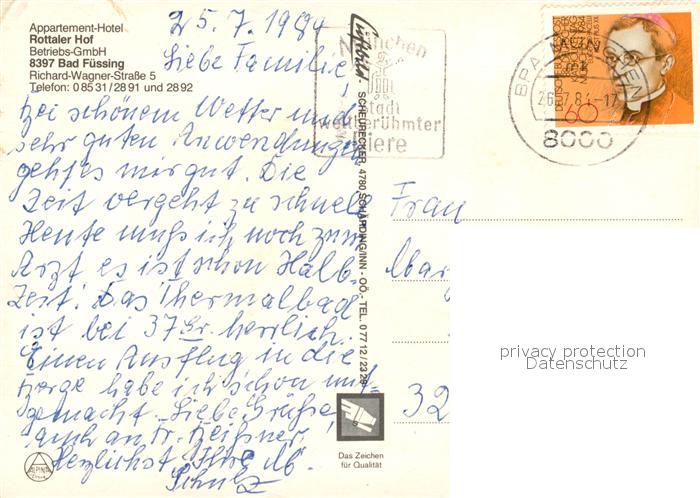 Appartement-Hotel
Rottaler Hof
Betriebs-GmbH
8397 Bad Füssing
Richard-Wagner-Straße 5
Telefon: 0 85 31 / 28 91 und 28 92
25.7.1984
Liebe Familie!
Bei schönem Wetter und
sehr guten Anwendungen
geht's mir gut. Die
Zeit vergeht zu schnell
Heute muß ich noch zum
Arzt es ist schon Halb-
Zeit! Das Thermalbad
ist bei 37 Gr. herrlich.
Einen Ausflug in die
Berge habe ich schon mit-
gemacht. Liebe Grüße
auch an Fr.
Herzlichst Ihre M.
Schulz
ALPINA
Luftbild. SCHEURECKER, 4780 SCHÄRDING/INN - OÖ. - TEL. 0 77 12 / 23 28
Das Zeichen
für Qualität
München
Stadt
weltberühmter
Biere
BPA MÜNCHEN
26.7.84-17
8000
DEUTSCHE BUNDESPOST
60
Frau
Mar
32
privacy protection
Datenschutz